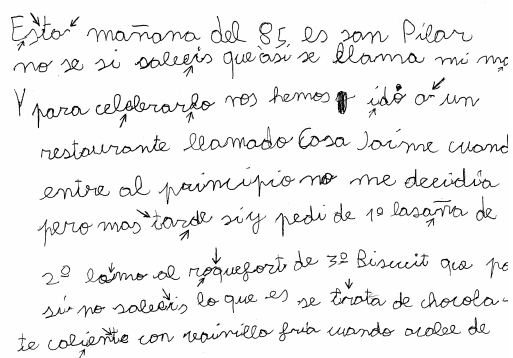 Esta mañana del 85, es san Pilar
no se si saleeis que así se llama mi
Y para celebrarlo nos hemos ido a un
restaurante llamado Casa Jaime cuand
entre al principio no me decidia
pero mas tarde si y pedi de 1º lasaña de
2º lomo al roquefort de 3º Biscuit que po
si no saleeis lo que es se trata de chocola-
te caliente con vainilla fria cuando acabe de